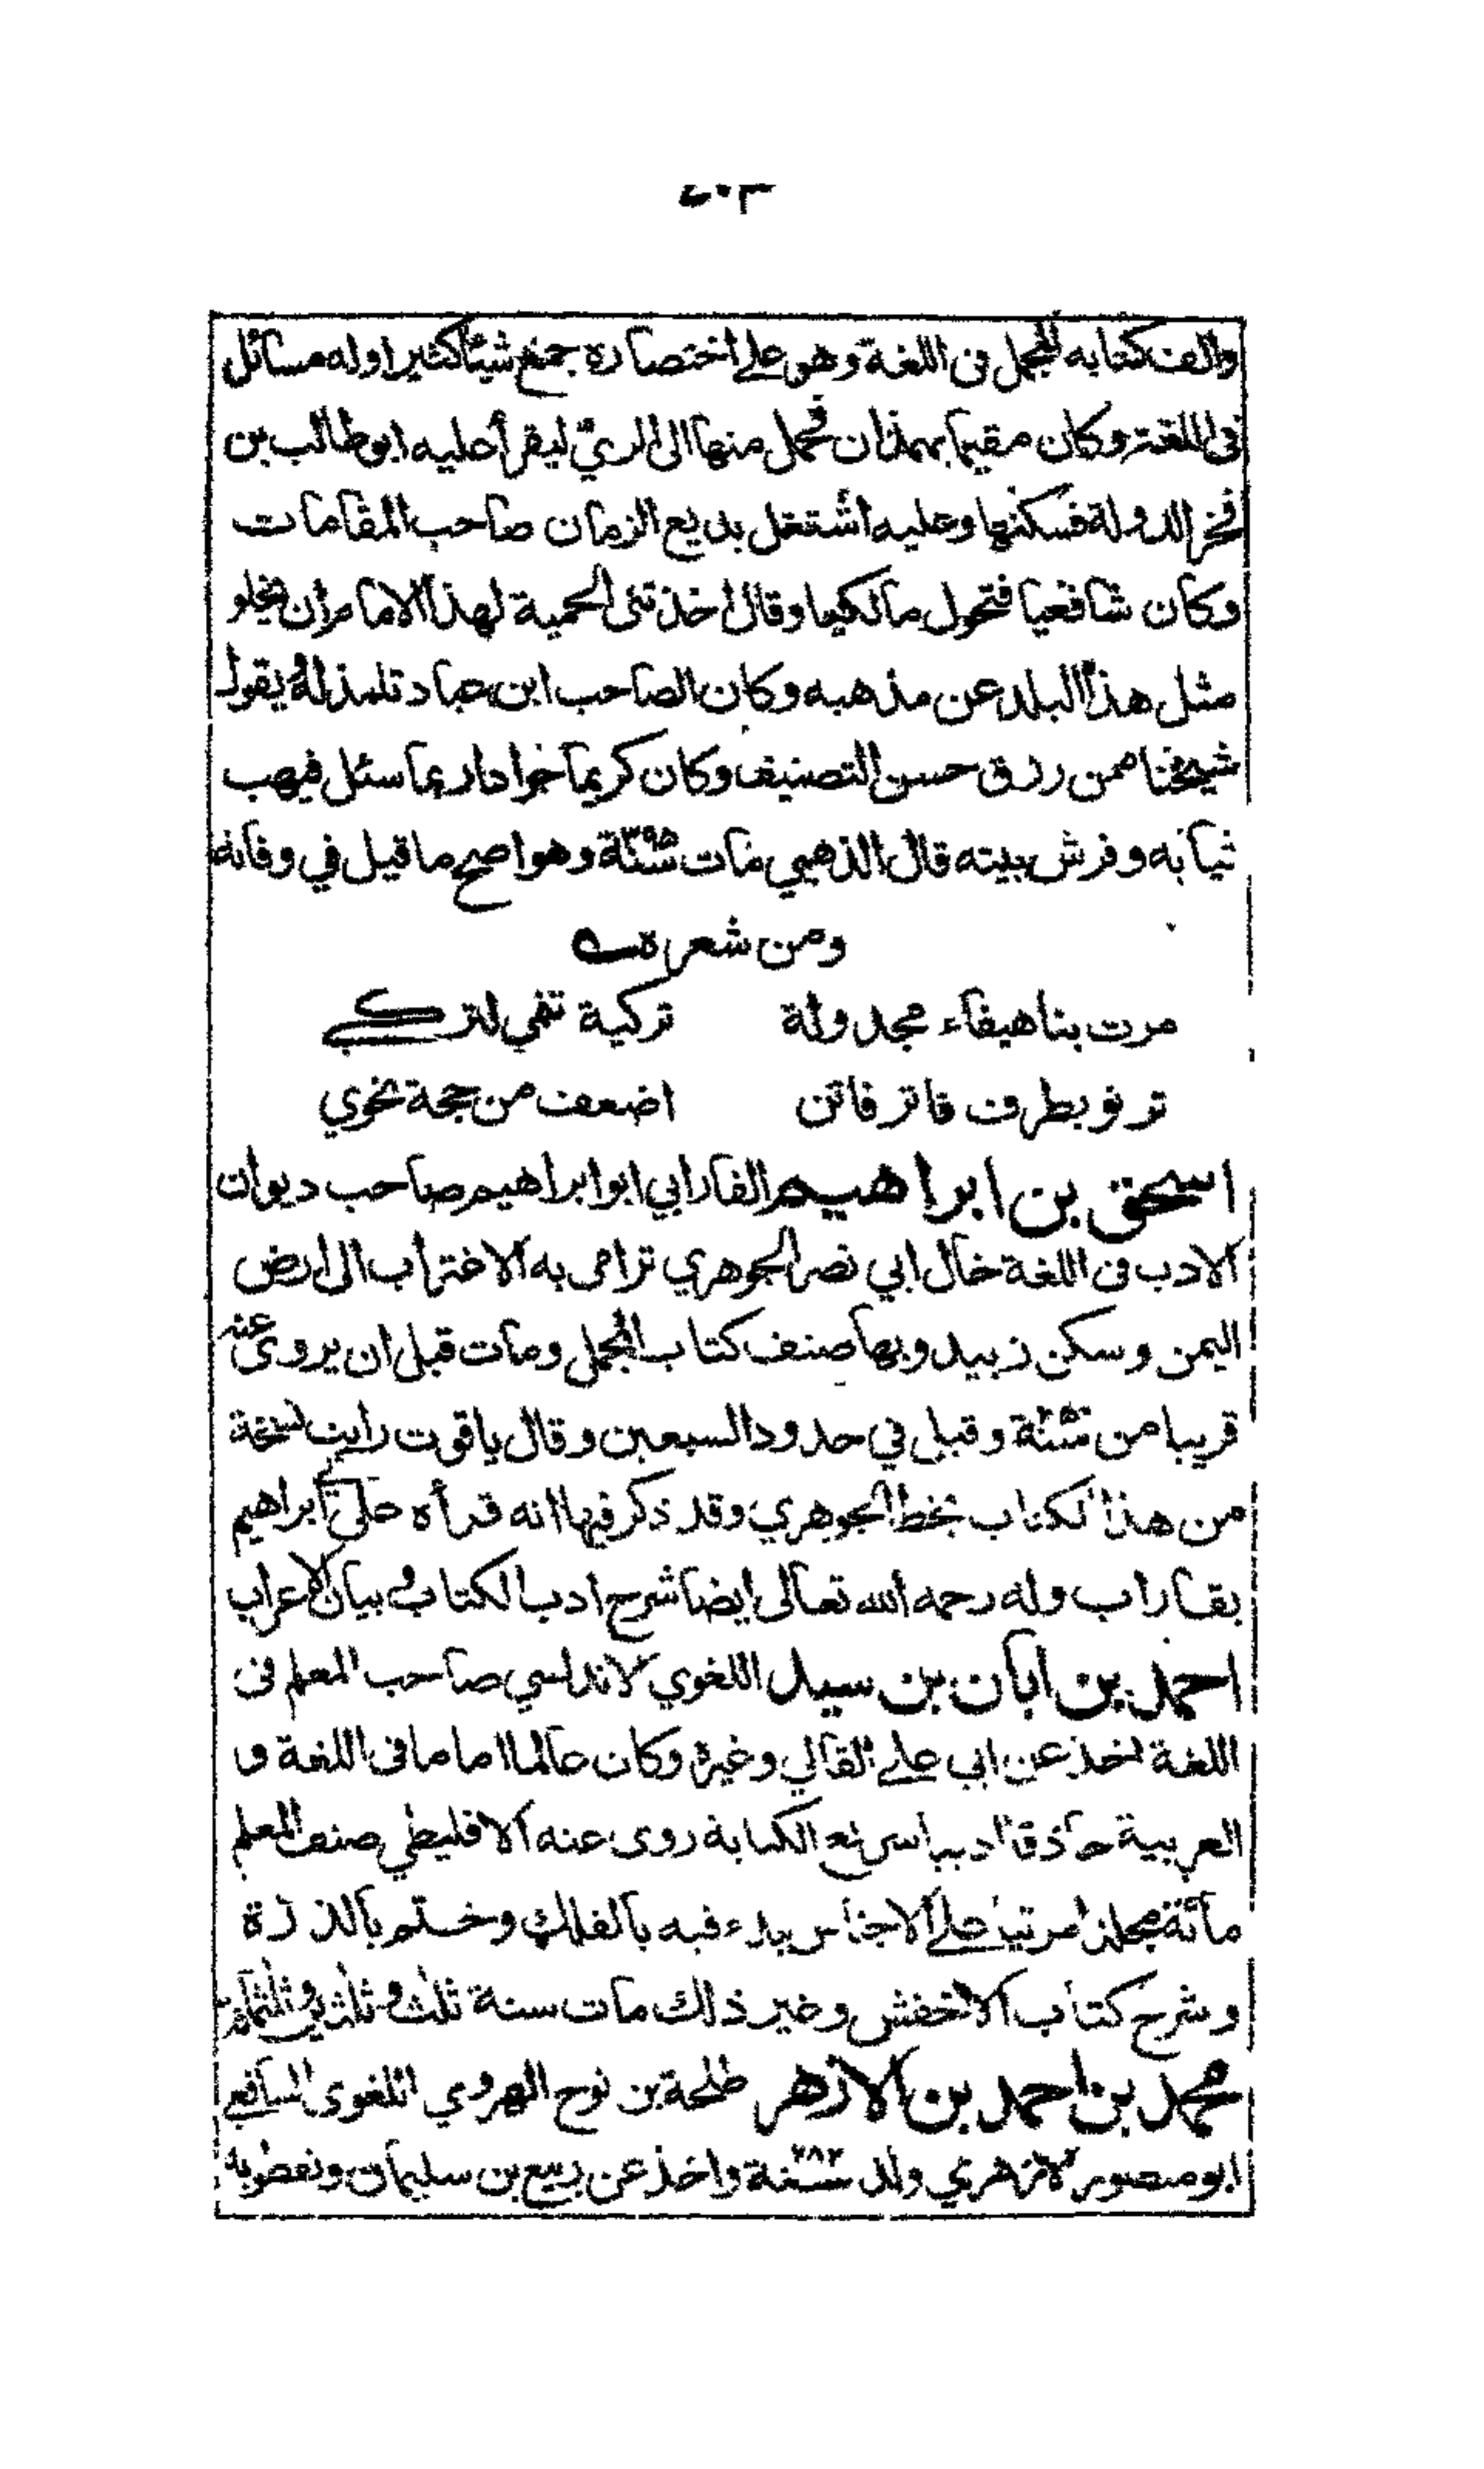 ٦٠٣
والف كتابه المجمل فى اللغة وهو على اختصاره جمع شيئا كثيرا وله مسائل
فى اللغة وكان مقيما بهمذان فحمل منها الى الريّ ليقرأ عليه ابو طالب بن
فخر الدولة فسكنها وعليه اشتغل بديع الزمان صاحب المقامات
وكان شافعيا فتحول مالكيا وقال اخذتنى الحمية لهذا الامام ان يخلو
مثل هذا البلد عن مذهبه وكان الصاحب ابن عباد تلمذ له يقول
شيخنا ممن رزق حسن التصنيف وكان كريما جوادا ربما سئل فيهب
ثيابه وفرش بيته قال الذهبي مات سنة ٣٩٥ وهو اصح ما قيل في وفاته
ومن شعره
مرت بنا هيفاء مجدولة تركية تنمي لتركي
ترنو بطرف فاتر فاتن اضعف من حجة نحوي
اسحق بن ابراهيم الفارابي ابو ابراهيم صاحب ديوان
الادب فى اللغة خال ابي نصر الجوهري ترامى به الاغتراب الى ارض
اليمن وسكن زبيد وبها صنف كتاب المجمل ومات قبل ان يروى عنه
قريبا من سنة وقيل في حدود السبعين وقال ياقوت رايت نسخة
من هذا الكتاب بخط الجوهري وقد ذكر فيها انه قرأه على ابراهيم
بفاراب وله رحمه الله تعالى ايضا شرح ادب الكتاب في بيان الاعراب
احمد بن ابان بن سيد اللغوي لاندلسي صاحب المعلم فى
اللغة اخذ عن ابي على القالي وغيره وكان عالما اماما فى اللغة و
العربية حاذقا اديبا سريع الكتابة روى عنه الافليطي صنف المعلم
مائة مجلد مرتبا على الاجناس بدء فيه بالفلك وختم بالذرة
وشرح كتاب الاخفش وغير ذلك مات سنة ثلث وثلثين وثلثمائة
محمد بن احمد بن الازهر طلحة بن نوح الهروي اللغوى الشافعي
ابو منصور لازهري ولد سنة ٢٨٢ واخذ عن ربيع بن سليمان ونفطويه